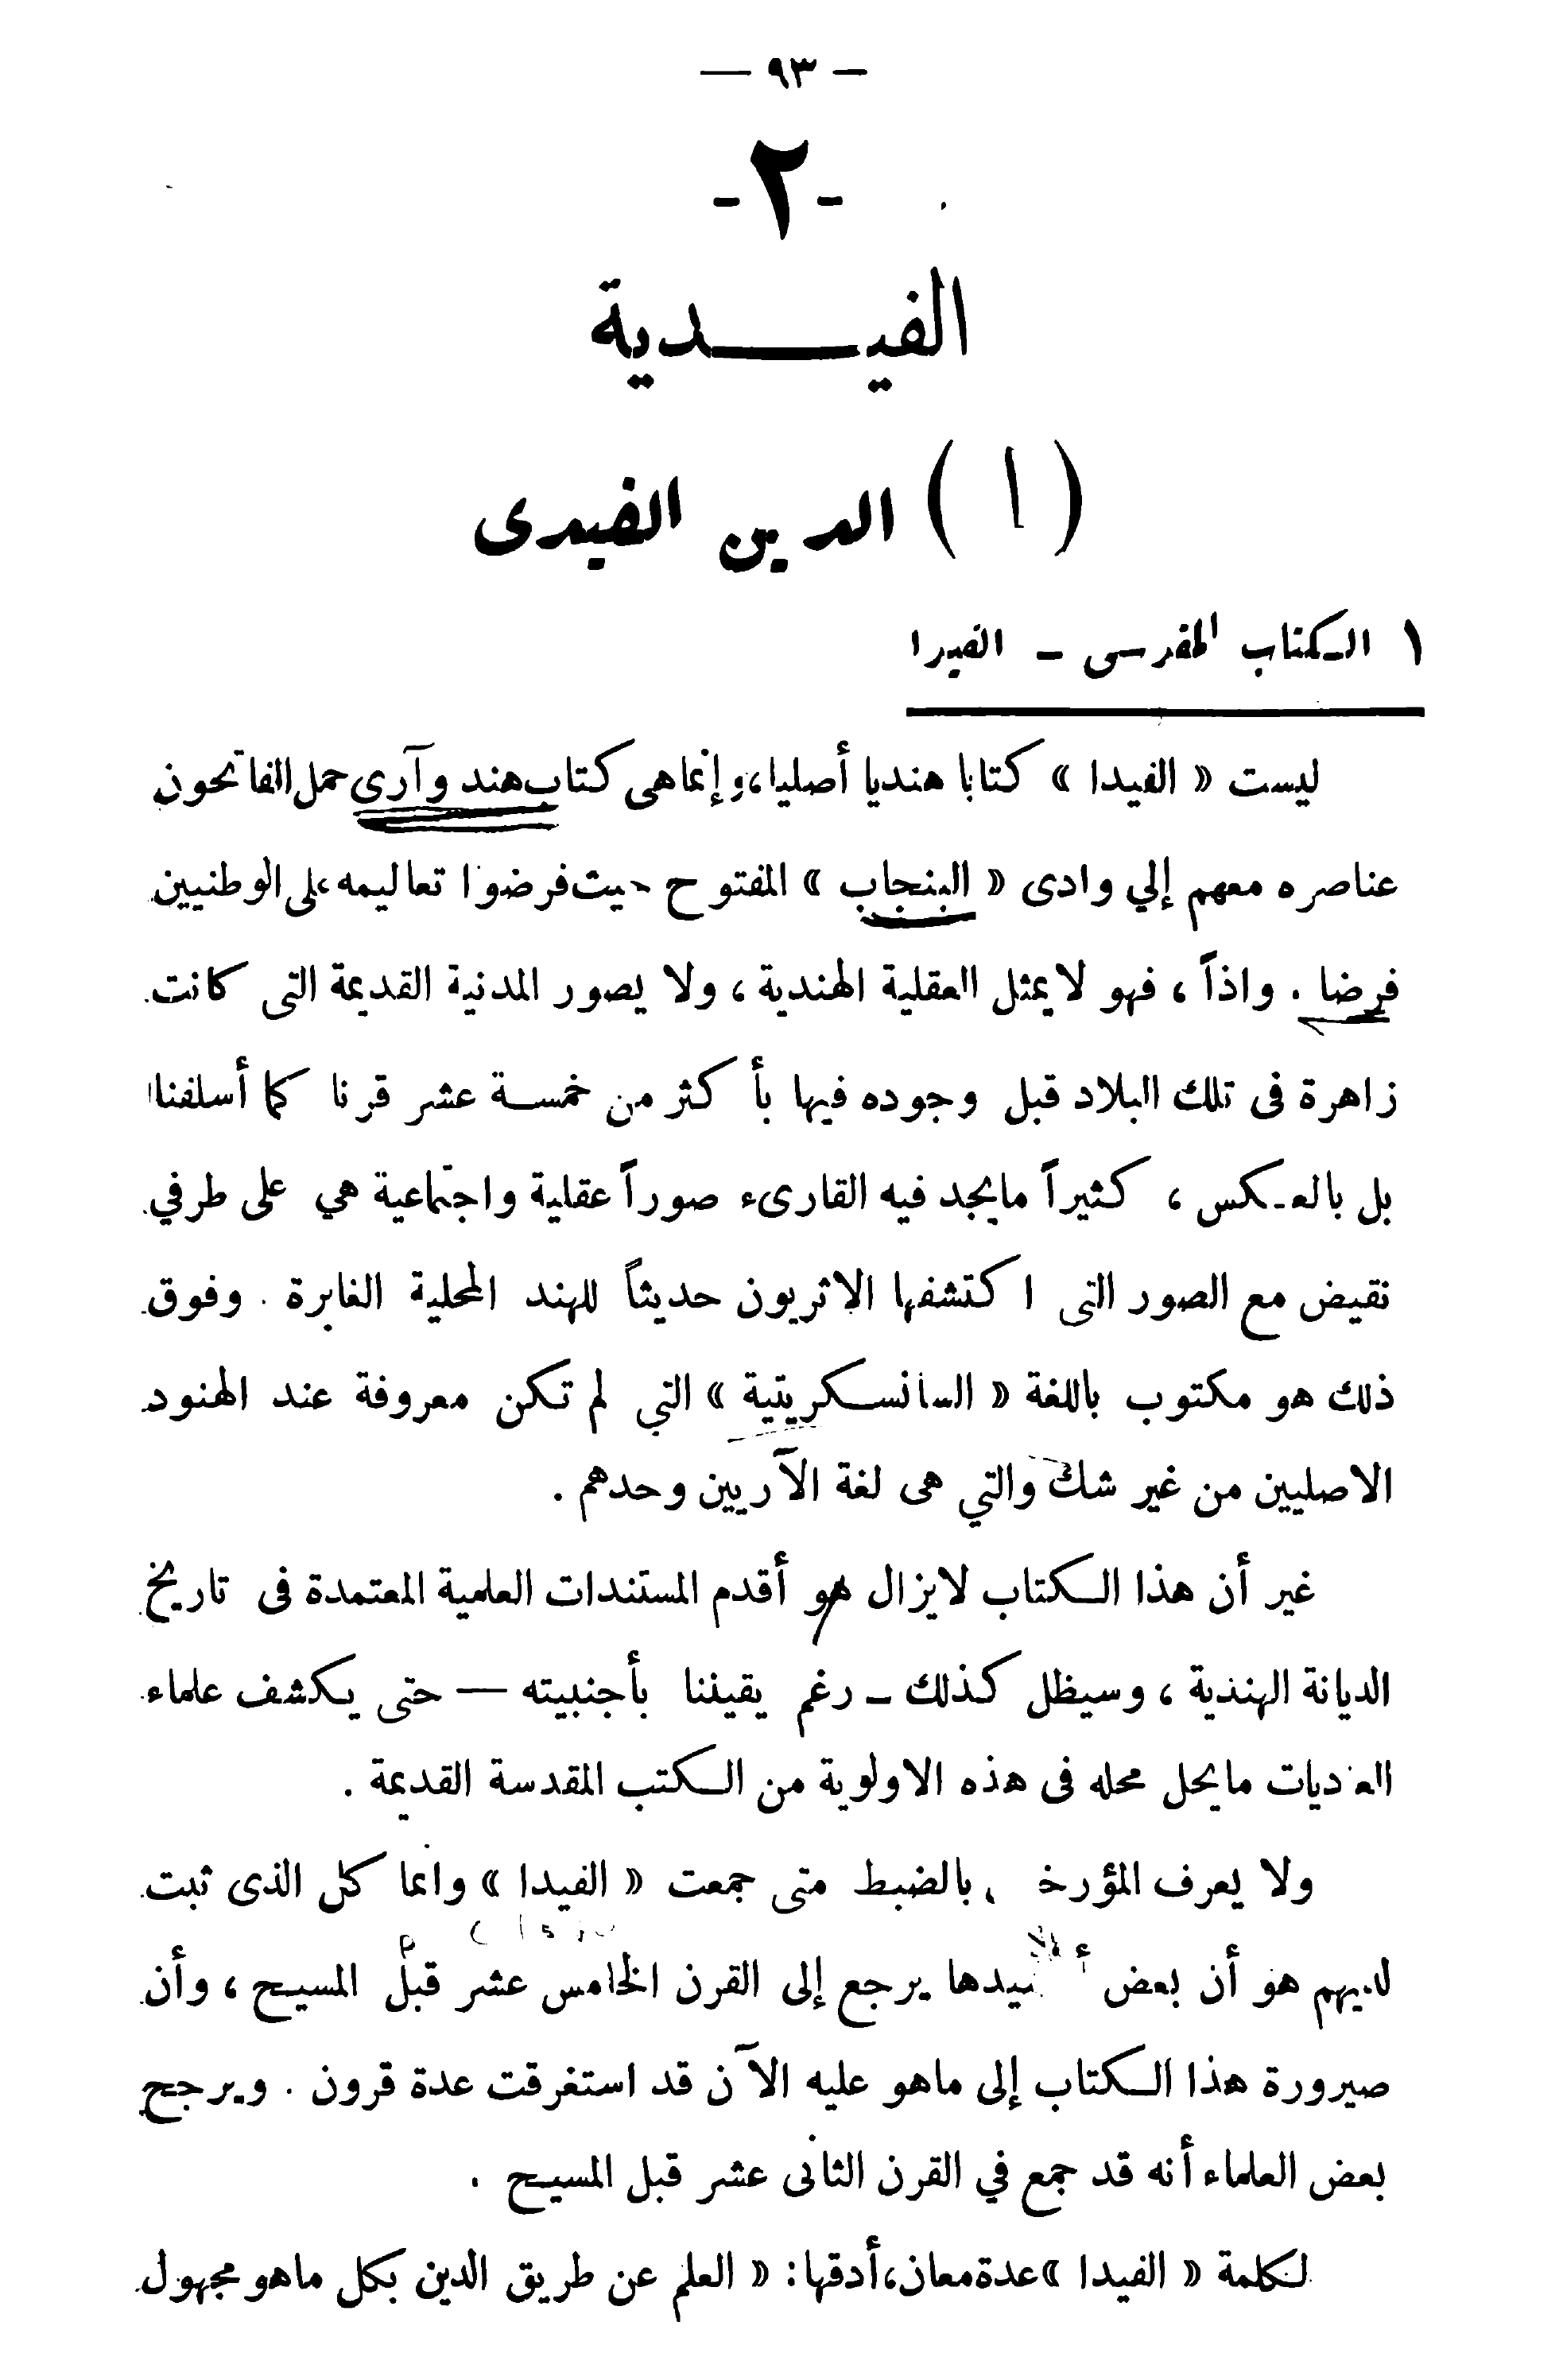 — ٩٣ —
-٢-
الفيــــدية
( ا ) الدين الفيدى
١ الـكتاب المقدس – الفيدا
ليست « الفيدا » كتابا هنديا أصليا، وإنما هى كتاب هند وآرى حمل الفاتحون
عناصره معهم إلي وادى « البنجاب » المفتوح حيث فرضوا تعاليمه على الوطنيين
فرضا . واذاً ، فهو لا يمثل العقلية الهندية ، ولا يصور المدنية القديمة التى كانت
زاهرة فى تلك البلاد قبل وجوده فيها بأ كثر من خمسـة عشر قرنا كما أسلفنا
بل بالعـكس ، كثيراً مايجد فيه القارىء صوراً عقلية واجتماعية هي على طرفي
نقيض مع الصور التى اكتشفها الاثريون حديثاً للهند المحلية الغابرة . وفوق
ذلك هو مكتوب باللغة « السانسـكريتية » التي لم تكن معروفة عند الهنود
الاصليين من غير شك والتي هى لغة الآريين وحدهم .
غير أن هذا الـكتاب لايزال هو أقدم المستندات العلمية المعتمدة فى تاريخ
الديانة الهندية ، وسيظل كذلك – رغم يقيننا بأجنبيته — حتى يـكشف علماء
العاديات مايحل محله فى هذه الاولوية من الـكتب المقدسة القديمة .
ولا يعرف المؤرخـ ، بالضبط متى جمعت « الفيدا » وانما كل الذى ثبت
لديهم هو أن بعض يرجع إلى القرن الخامس عشر قبل المسيـح ، وأن
صيرورة هذا الـكتاب إلى ماهو عليه الآن قد استغرقت عدة قرون . ويرجح
بعض العلماء أنه قد جمع في القرن الثانى عشر قبل المسيـح .
لـكلمة « الفيدا » عدة معان، أدقها: « العلم عن طريق الدين بكل ماهو مجهول